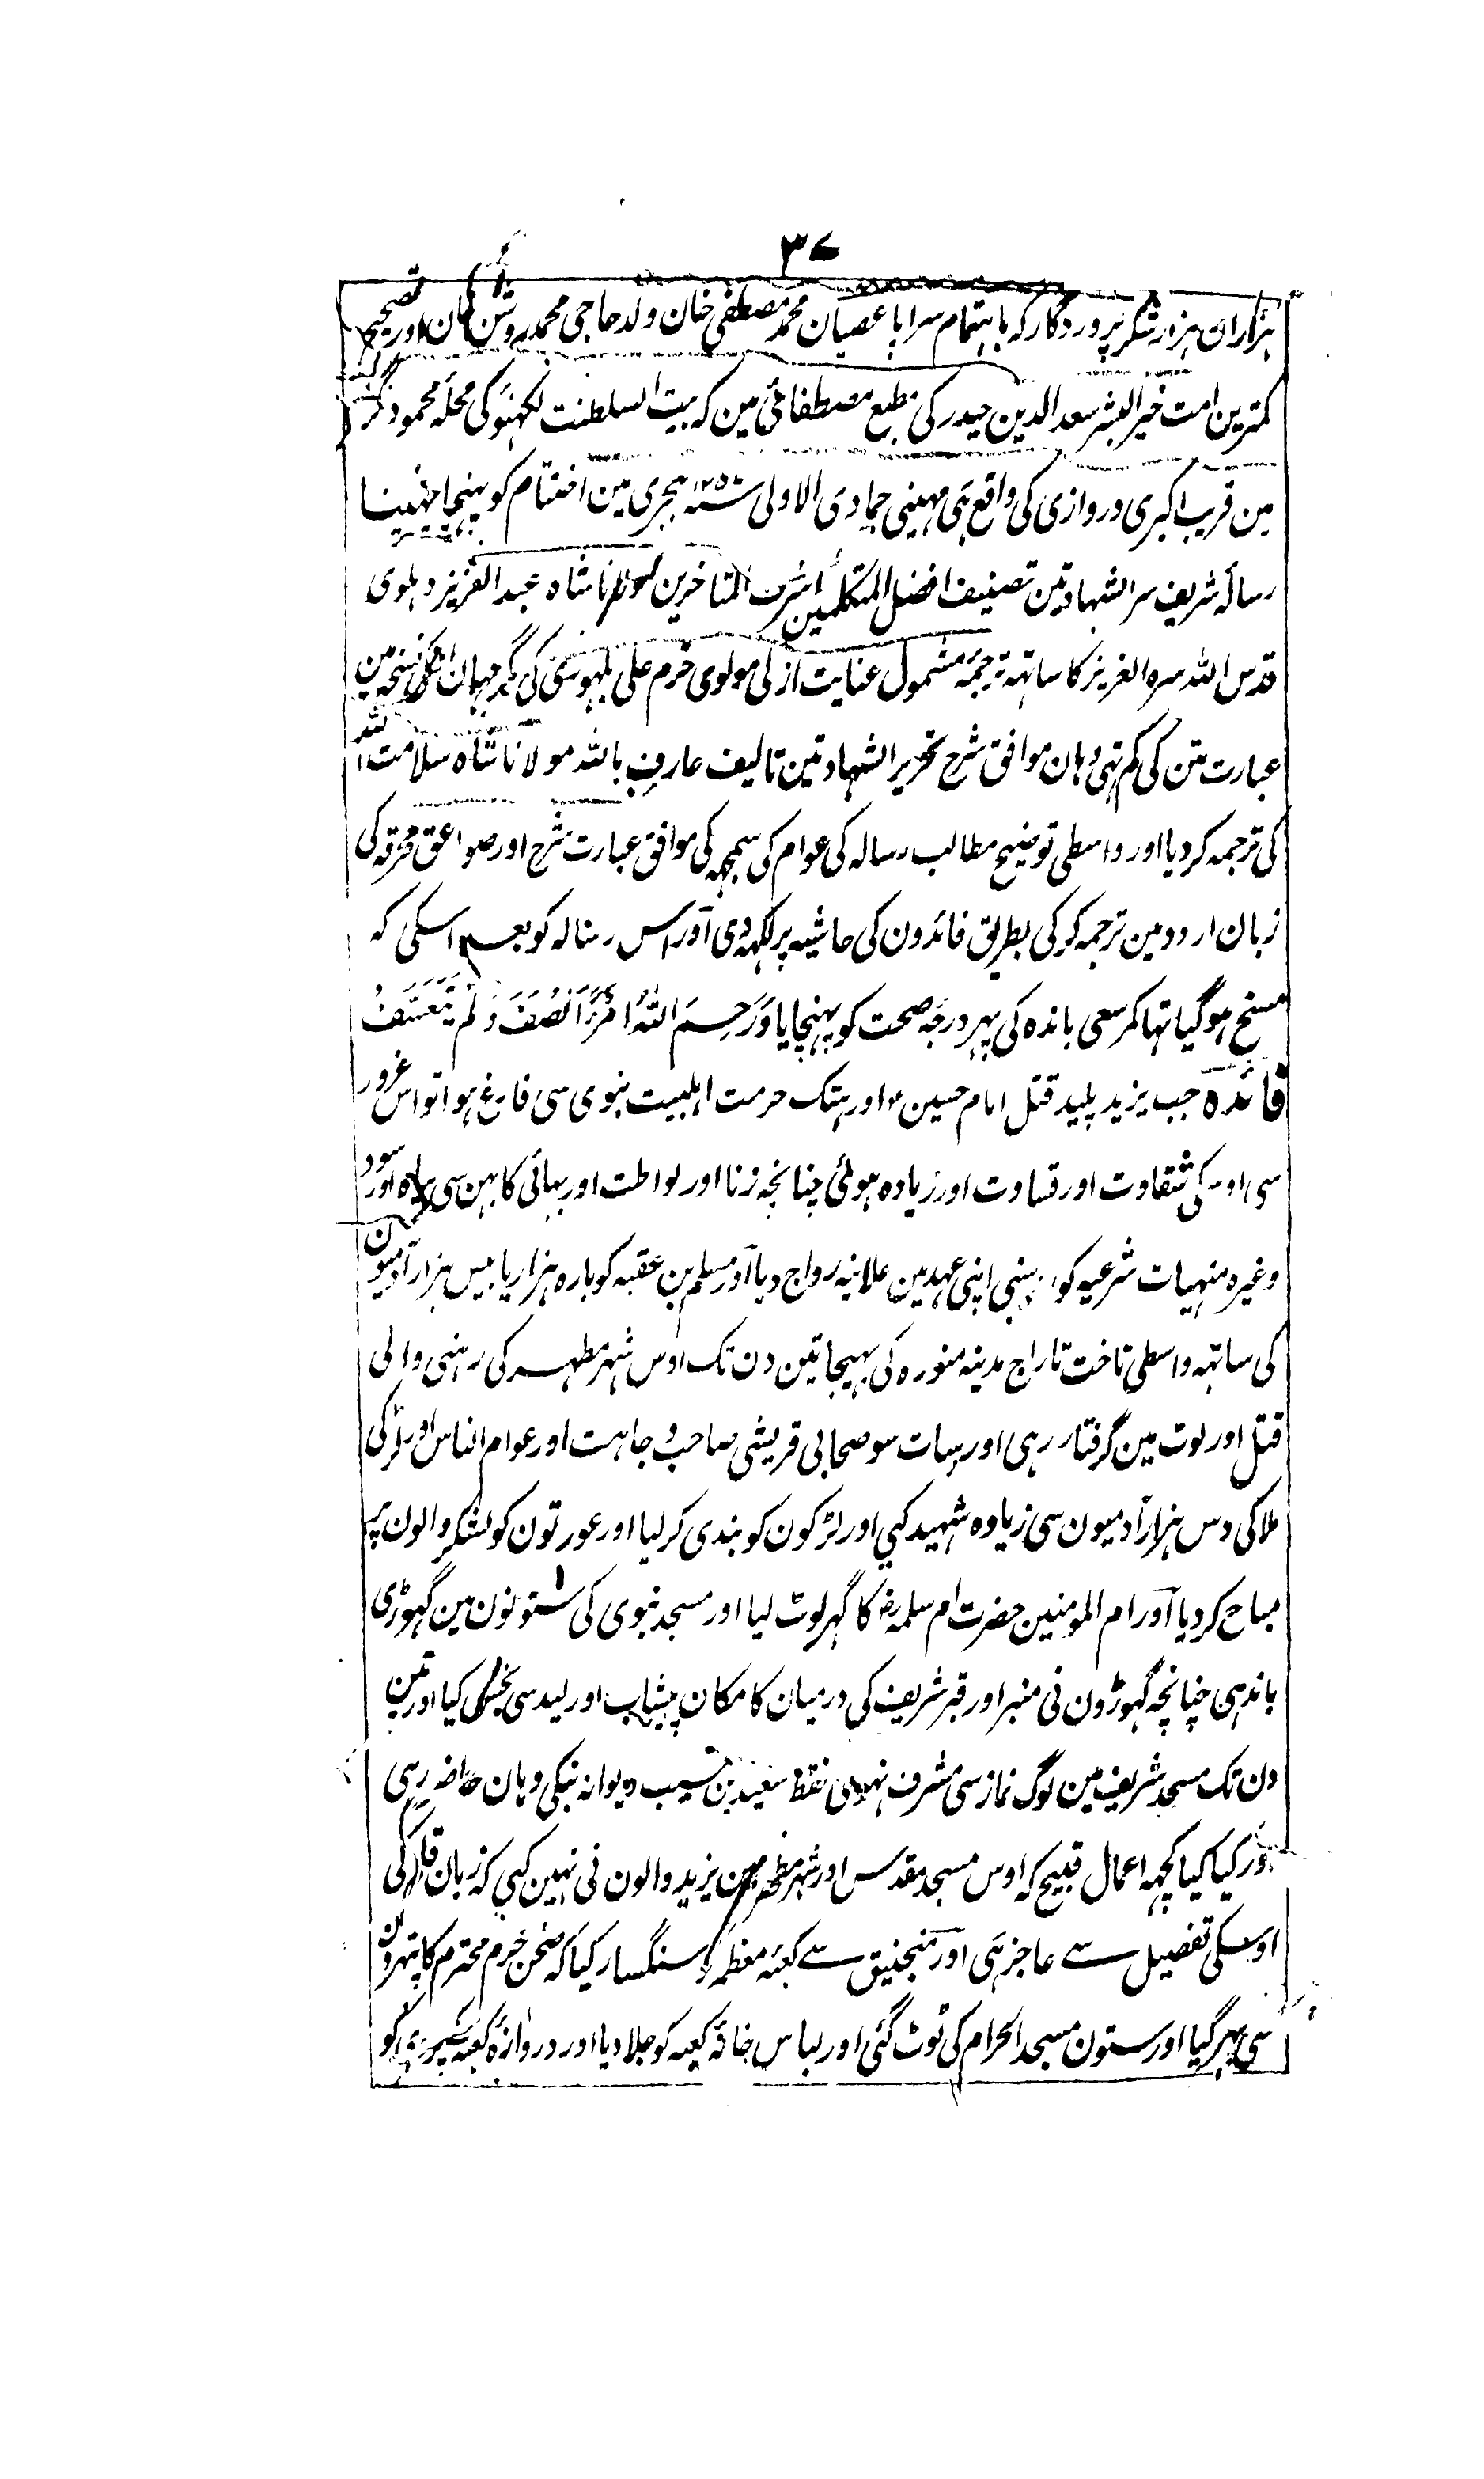 ۳۷
ہزاران ہزار شکر پروردگار کہ باہتمام سراپا عصیان محمد مصطفی خان ولد حاجی محمد روشن خان اور تصحیح
کمترین امت خیر البشر سعد الدین حیدر کی مطبع مصطفائی مین کہ بیت السلطنت لکہنؤ کی محلہ محمود نگر
مین قریب اکبری دروازی کی واقع ہی مہینی جمادی الاولی ہجری مین اختتام کو پہنچا
رسالہ شریف سر الشہادتین تصنیف افضل المتکلمین اشرف المتاخرین مولانا شاہ عبد العزیز دہلوی
قدس اللہ سرہ العزیز کا ساتہہ ترجمہ مشمول عنایت ازلی مولوی خرم علی بلہوری کی مگر جہان نسخہ مین
عبارت متن کی کم تہی وہان موافق شرح تحریر الشہادتین تالیف عارف باللہ مولانا شاہ سلامت اللہ
کی ترجمہ کر دیا اور واسطی توضیح مطالب رسالہ کی عوام کی سمجہہ کی موافق عبارت شرح اور صواعق محرقہ کی
زبان اردو مین ترجمہ کر کی بطریق فائدون کی حاشیہ پر لکہہ دی اور اس رسالہ کو بعد اسکی کہ
مسخ ہو گیا تہا کمر سعی باندہ کی پہر درجہ صحت کو پہنچایا وَرَحِمَ اللّٰهُ امْرَأً اَنْصَفَ وَلَمْ يَتَعَسَّفْ
فائدہ جب یزید پلید قتل امام حسین ؑ اور ہتک حرمت اہلبیت نبوی سی فارغ ہوا تو اس غرور
سی اوسکی شقاوت اور قساوت اور زیادہ ہوئی چنانچہ زنا اور لواطت اور بہائی کا بہن سی بیاہ اور سود
وغیرہ منہیات شرعیہ کو اپنی عہد مین علانیہ رواج دیا اور مسلم بن عقبہ کو بارہ ہزار یا بیس ہزار آدمیون
کی ساتہہ واسطی تاخت تاراج مدینہ منورہ کی بہیجا تین دن تک اوس شہر مطہر کی رہنی والی
قتل اور لوٹ مین گرفتار رہی اور سات سو صحابی قریشی صاحب وجاہت اور عوام الناس اور لڑکی
ملا کی دس ہزار آدمیون سی زیادہ شہید کیی اور لڑکون کو بندی کر لیا اور عورتون کو لشکر والون پر
مباح کر دیا اور ام المومنین حضرت ام سلمہ رض کا گہر لوٹ لیا اور مسجد نبوی کی ستونون مین گہوڑی
باندہی چنانچہ گہوڑون نی منبر اور قبر شریف کی درمیان کا مکان پیشاب اور لید سی نجس کیا اور تین
دن تک مسجد شریف مین لوگ نماز سی مشرف نہوئی فقط سعید بن مسیب دیوانہ بنکی وہان حاضر رہی
اور کیا کیا کچہہ اعمال قبیح کہ اوس مسجد مقدس اور شہر مطہر مین یزید والون نی نہین کیی کہ زبان قلم کی
اوسکی تفصیل سے عاجز ہی اور منجنیق سے کعبہ معظمہ کو سنگسار کیا کہ صحن حرم محترم کا پتہرون
سی بہر گیا اور ستون مسجد الحرام کی ٹوٹ گئی اور لباس خانہ کعبہ کو جلا دیا اور دروازہ کعبہ کو